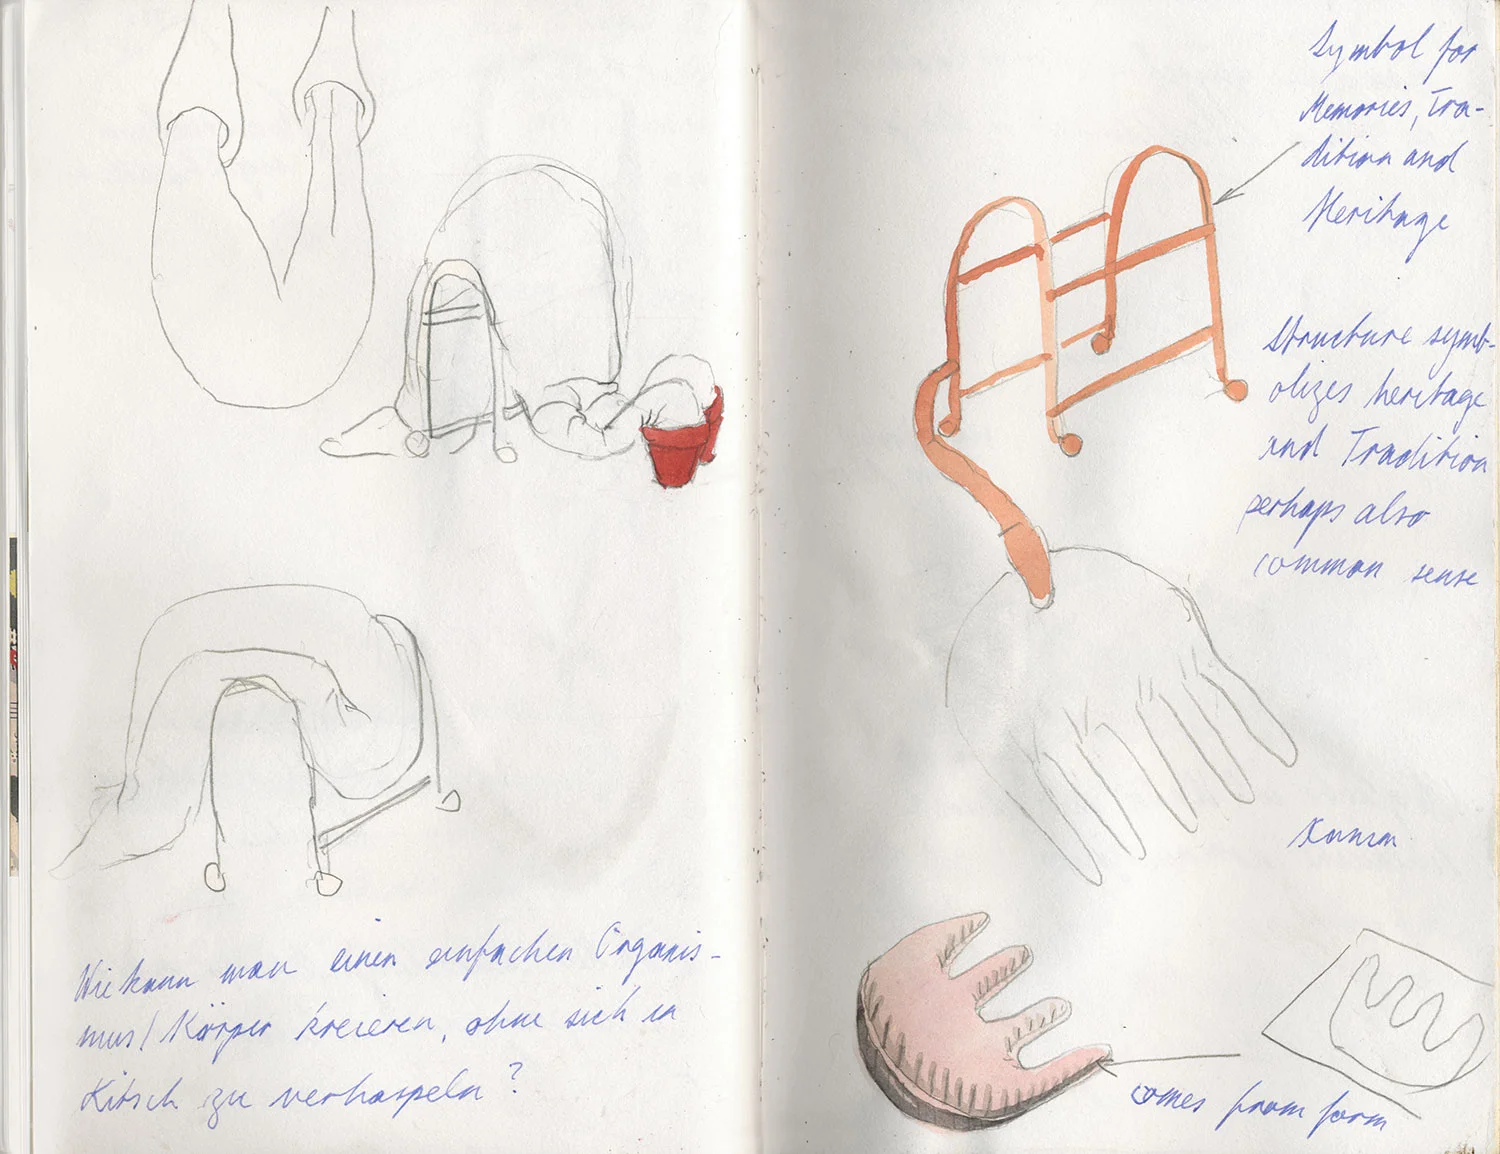 Wie kann man einen einfachen Organis-
mus/Körper kreieren, ohne sich in
Kitsch zu verhaspeln?
Symbol for
Memories, Tra-
dition and
Heritage
Structure symb-
olizes heritage
and Tradition
perhaps also
common sense
comes from form